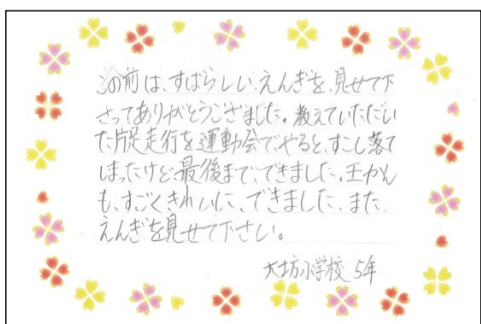 この前は、すばらしいえんぎを、見せて下
さってありがとうございました。教えていただい
た片足走行を運動会で、やると、すこし落て
しまったけど、最後まで、できました。王かん
も、すごくきれいに、できました。また、
えんぎを見せて下さい。
大坊小学校 5年